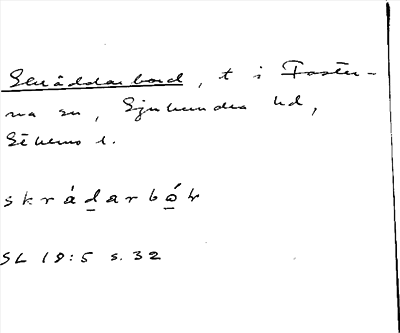 Skräddarbord, t i Faster-
na sn, Sjuhundra hd,
Sthms l.
skrádarbó
SL 19:5 s. 32